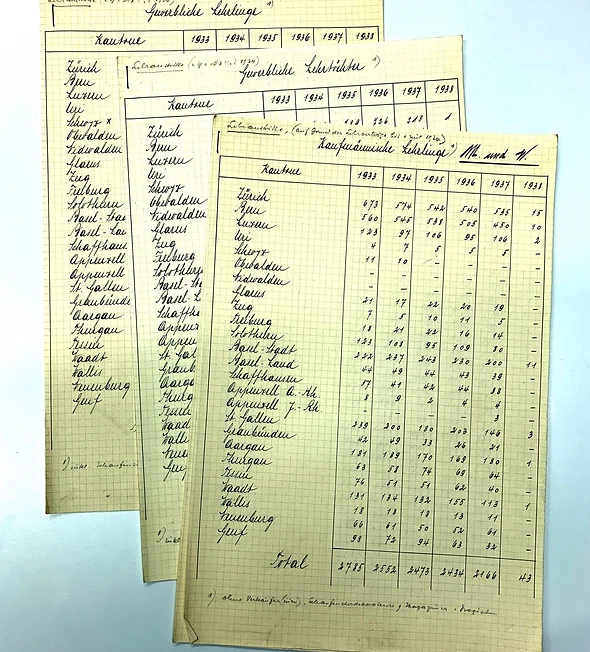 Gewerbliche Lehrlinge 1)
Kantone 1933 1934 1935 1936 1937 1938
Zürich
Bern
Luzern
Uri
Schwyz x
Obwalden
Nidwalden
Glarus
Zug
Freiburg
Solothurn
Basel-Stad
Basel-Lan
Schaffhaus
Appenzell
Appenzell
St. Gallen
Graubünde
Aargau
Thurgau
Tessin
Waadt
Wallis
Neuenburg
Genf
Gewerbliche Lehrtöchter 1)
Kantone 1933 1934 1935 1936 1937 1938
Zürich
Bern
Luzern
Uri
Schwyz
Obwalden
Nidwalden
Glarus
Zug
Freiburg
Solothurn
Basel-Sta
Basel-L
Schaffh
Appenz
Appen
St. Gal
Graub
Aarga
Thurg
Tessin
Waad
Walli
Neue
Genf
Kaufmännische Lehrlinge 1) M. und W.
Kantone 1933 1934 1935 1936 1937 1938
Zürich 673 574 542 540 535 15
Bern 560 545 538 505 450 10
Luzern 123 97 106 95 106 2
Uri 4 7 5 5 5 -
Schwyz 11 10 - - - -
Obwalden - - - - - -
Nidwalden - - - - - -
Glarus 21 17 22 20 19 -
Zug 7 5 10 11 5 -
Freiburg 18 21 22 16 14 -
Solothurn 123 108 95 109 80 -
Basel-Stadt 222 237 243 230 200 11
Basel-Land 44 49 44 43 39 -
Schaffhausen 57 41 42 44 38 -
Appenzell A.-Rh. 8 9 2 4 4 -
Appenzell J.-Rh. - - - - 3 -
St. Gallen 239 200 180 203 146 3
Graubünden 42 49 33 26 21 -
Aargau 181 189 170 169 180 1
Thurgau 63 58 74 69 64 -
Tessin 76 51 51 62 40 -
Waadt 131 134 132 155 113 1
Wallis 18 18 18 13 11 -
Neuenburg 66 61 50 52 61 -
Genf 98 72 94 63 32 -
Total 2785 2552 2473 2434 2166 43